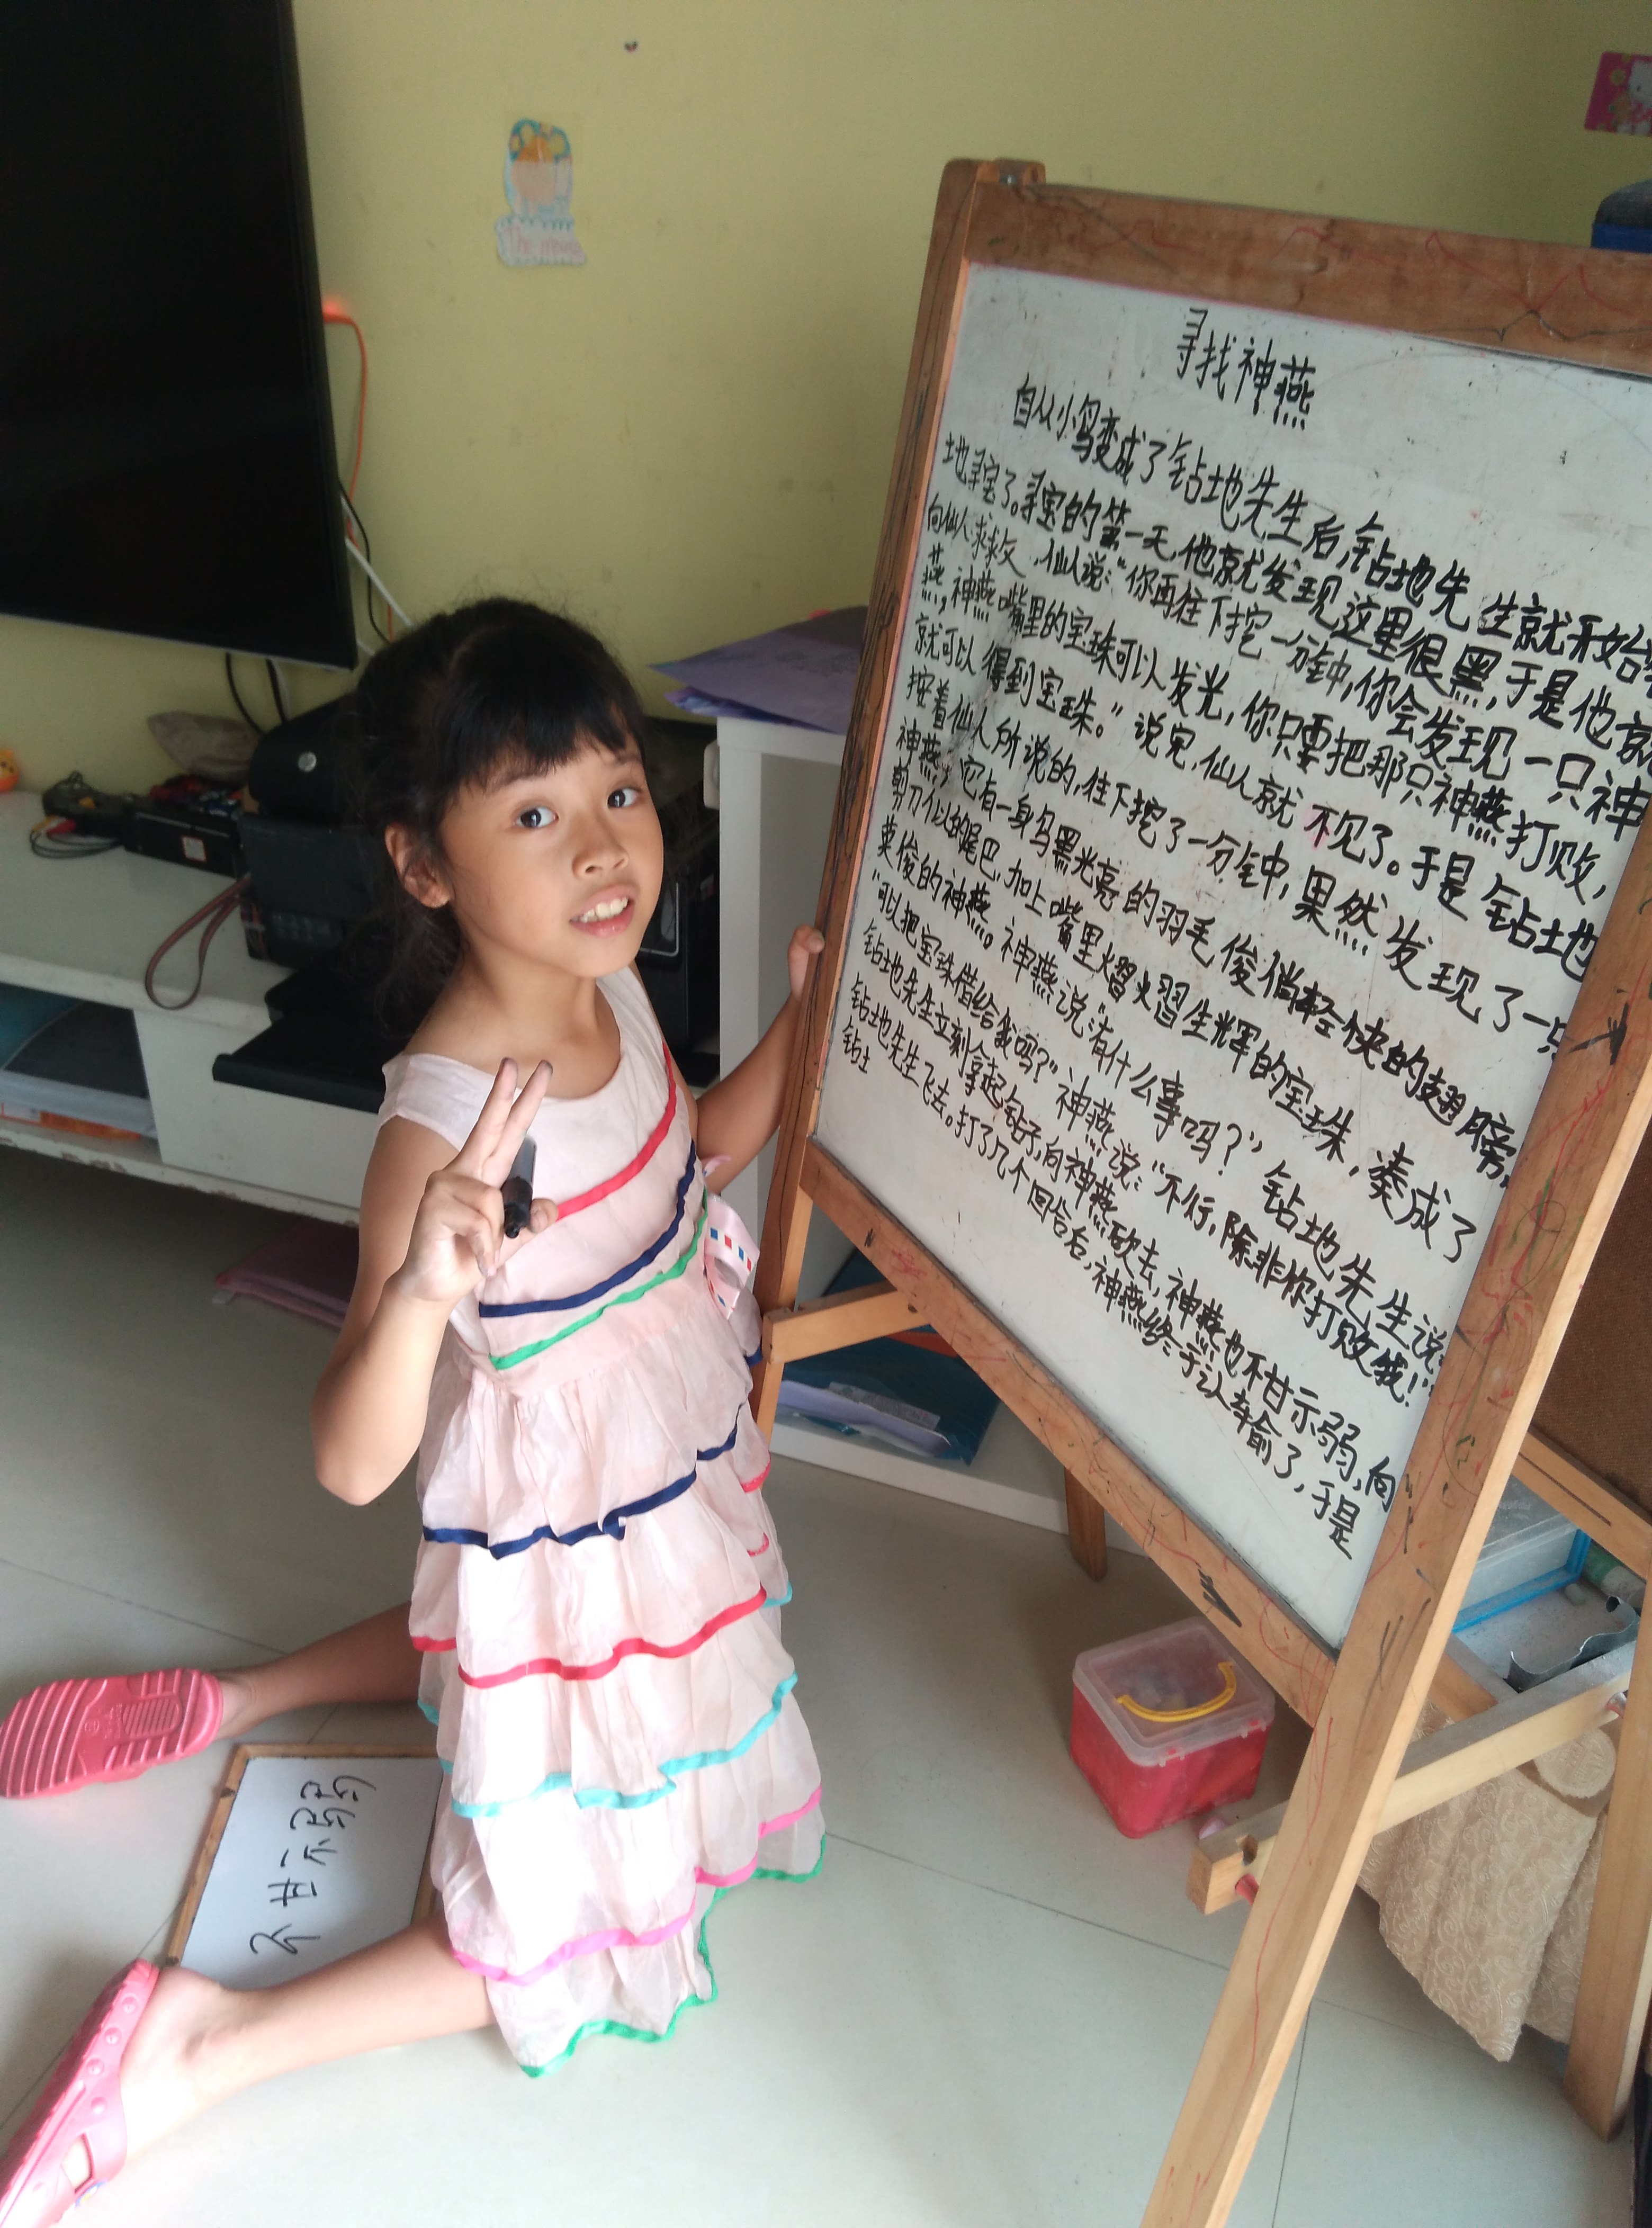 The mouse
寻找神燕
自从小鸟变成了钻地先生后,钻地先生就开始
地寻宝了。寻宝的第一天,他就发现这里很黑,于是他就
向仙人求救,仙人说:“你再往下挖一分钟,你会发现一只神
燕,神燕嘴里的宝珠可以发光,你只要把那只神燕打败,
就可以得到宝珠。”说完,仙人就不见了。于是钻地
按着仙人所说的,往下挖了一分钟,果然发现了一只
神燕,它有一身乌黑光亮的羽毛,俊俏轻快的翅膀,
剪刀似的尾巴,加上嘴里熠熠生辉的宝珠,凑成了
英俊的神燕。神燕说:“有什么事吗?”钻地先生说:
“可以把宝珠借给我吗?”神燕说:“不行,除非你打败我!”
钻地先生立刻拿起钻子,向神燕砍去,神燕也不甘示弱,向
钻地先生飞去。打了几个回合后,神燕终于认输了,于是
钻土
不甘示弱